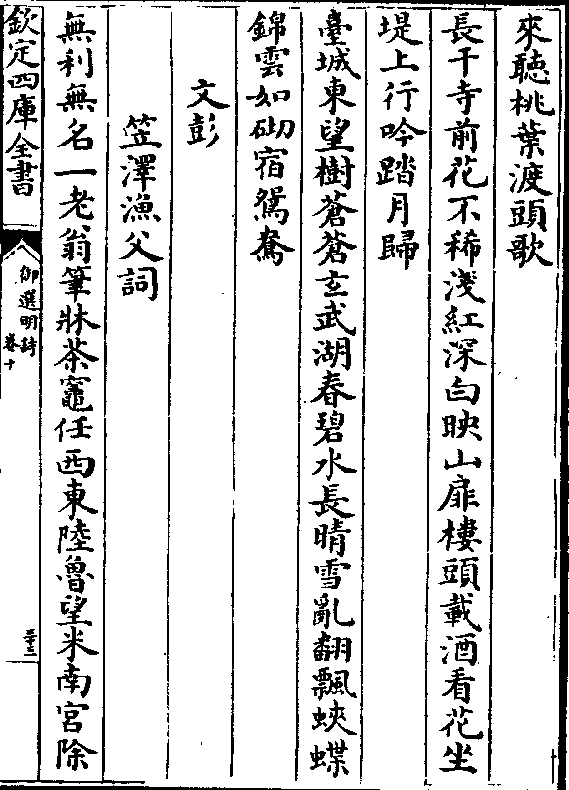 來聽桃葉渡頭歌
長干寺前花不稀淺紅深白映山扉樓頭載酒看花坐
堤上行吟踏月歸
臺城東望樹蒼蒼玄武湖春碧水長晴雪亂翻飄蛺蝶
錦雲如砌宿鴛鴦
文彭
笠澤漁父詞
無利無名一老翁筆牀茶竈任西東陸魯望米南宮除
欽定四庫全書
御選明詩
卷十
三十三